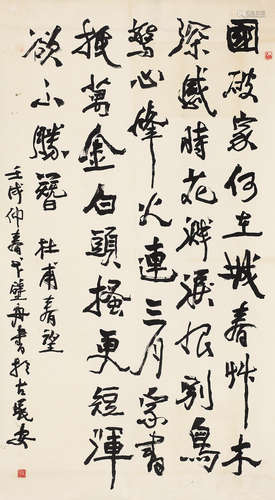 國破家何在城春艸木
深感時花濺淚恨別鳥
驚心烽火連三月家書
抵萬金白頭搔更短渾
欲不勝簪
杜甫春望
壬戌仲春舟書於古長安